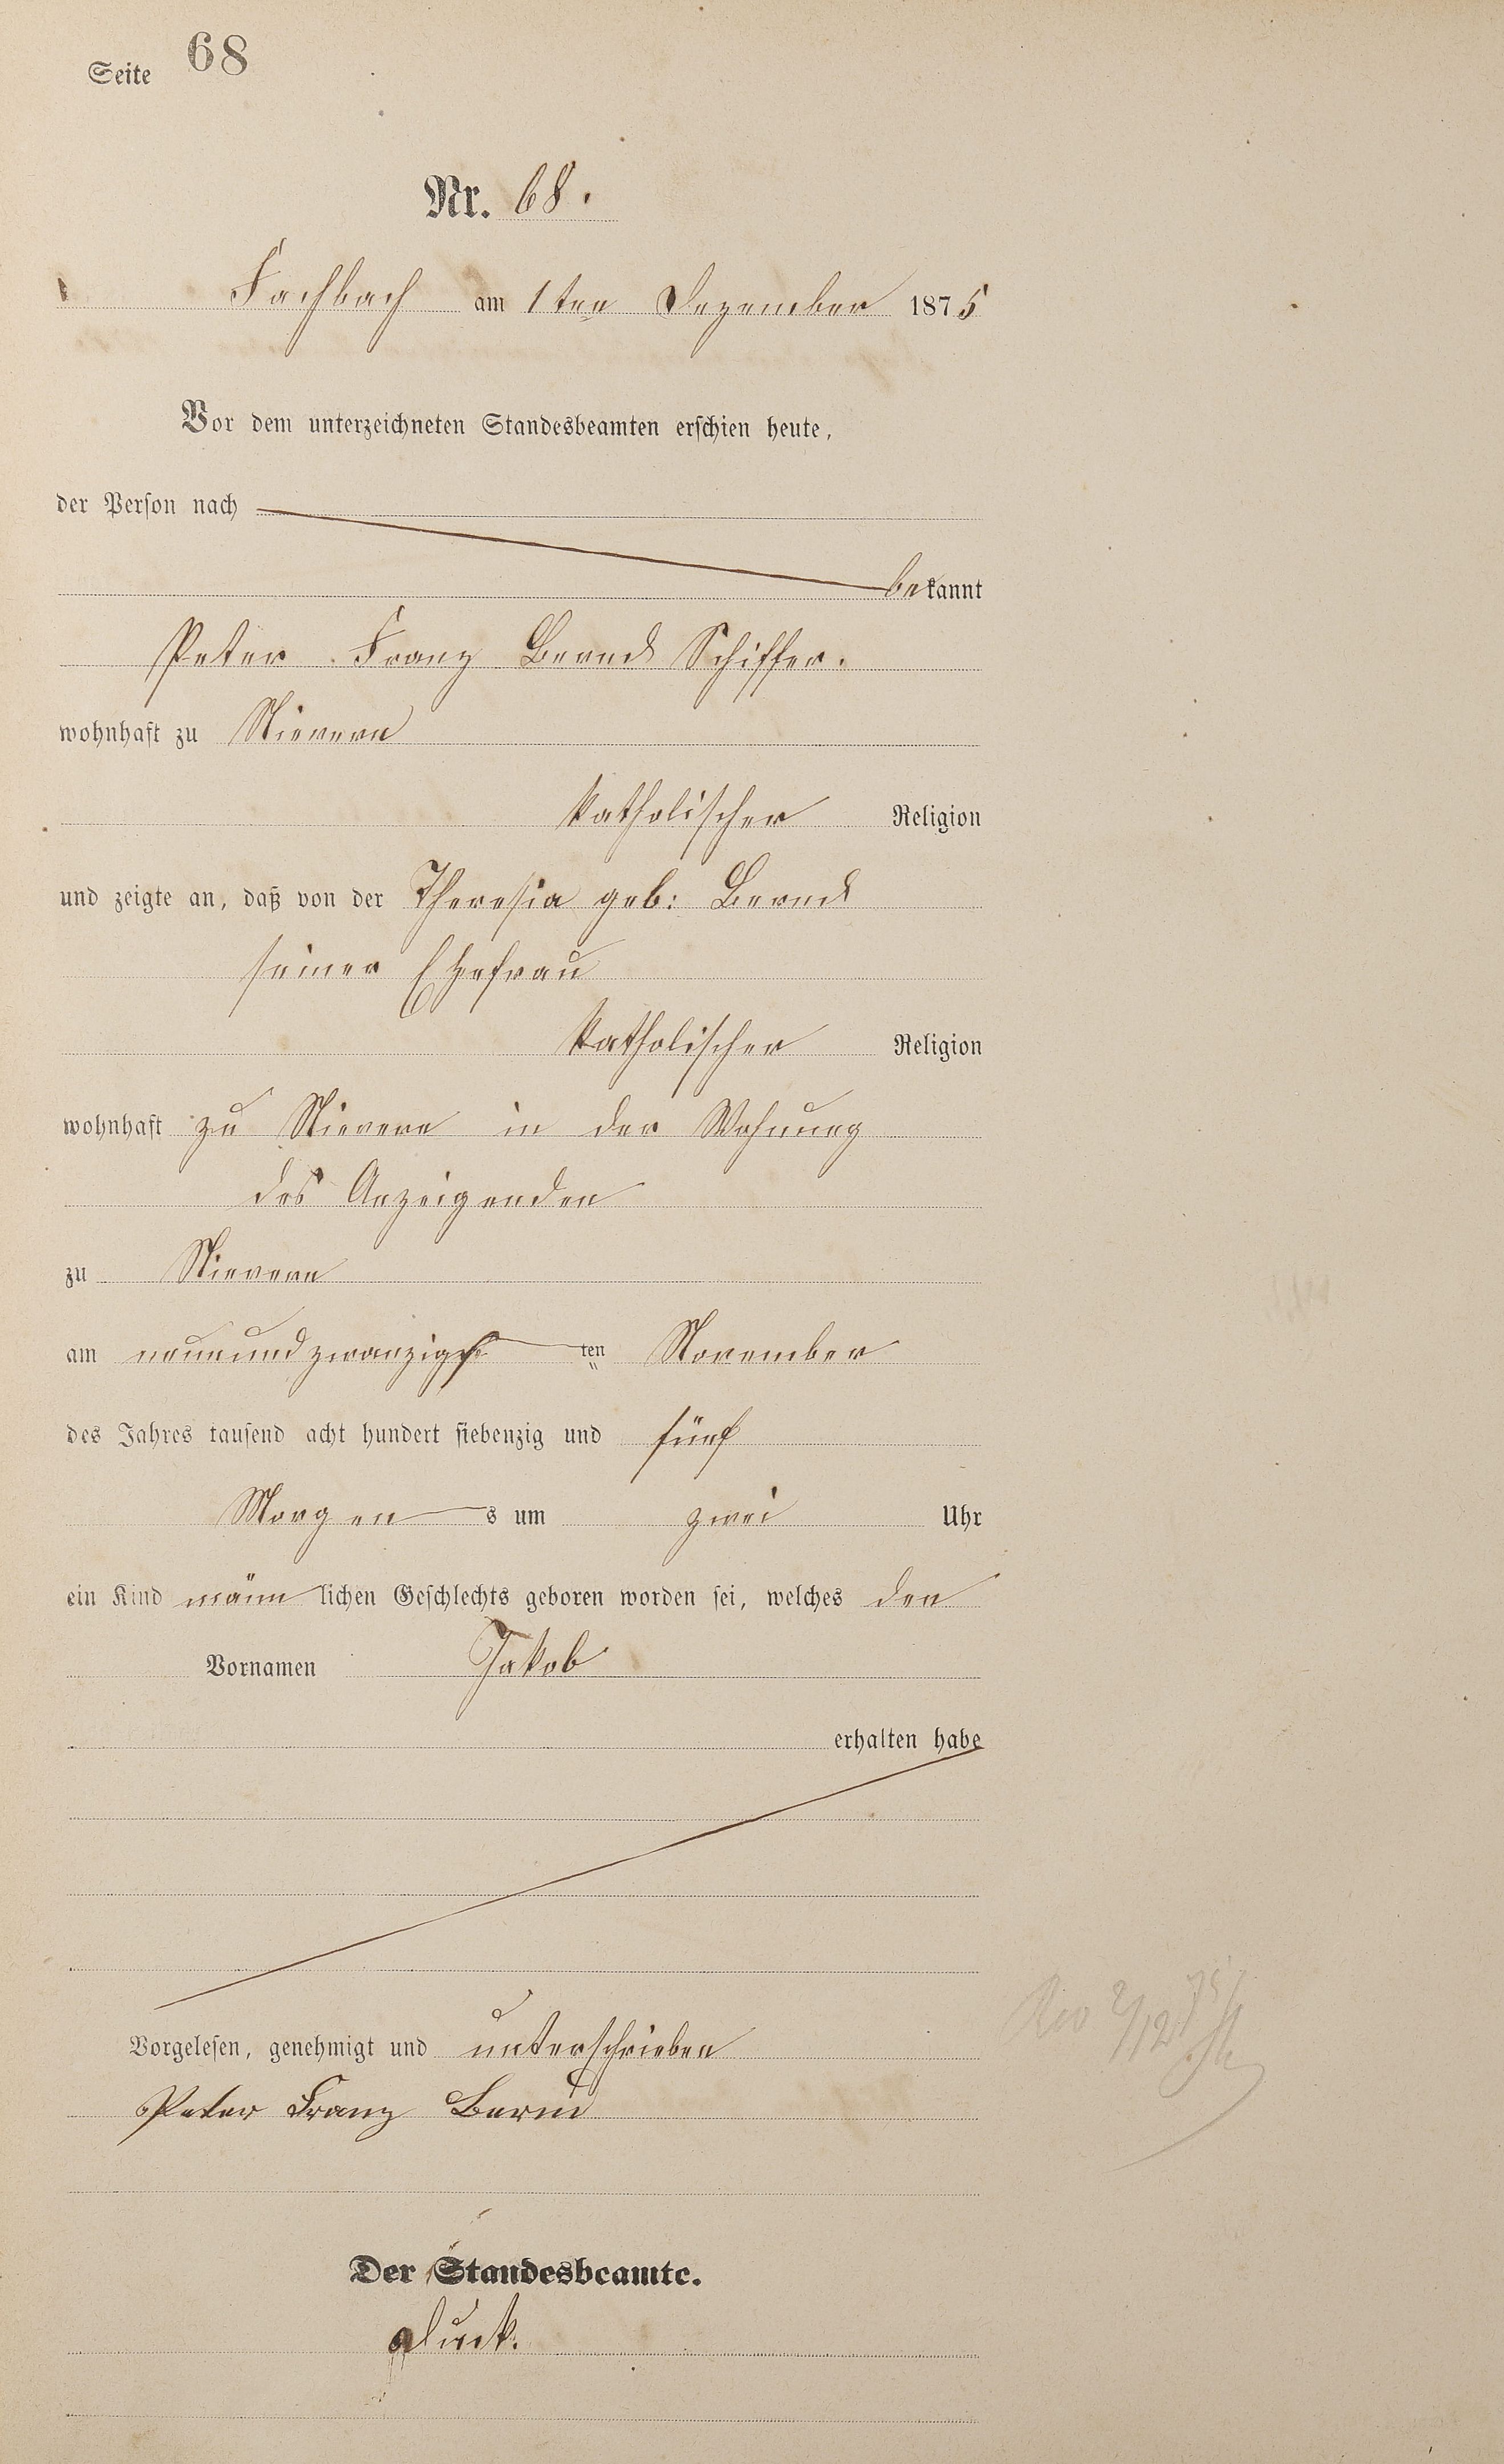 Seite 68
Nr. 68.
Fachbach am 1ten Dezember 1875
Vor dem unterzeichneten Standesbeamten erschien heute,
der Person nach
bekannt
Peter Franz Bernd Schiffer.
wohnhaft zu Nievern
katholischer Religion
und zeigte an, daß von der Theresia geb: Bernd
seiner Ehefrau
katholischer Religion
wohnhaft zu Nievern in der Wohnung
des Anzeigenden
zu Nievern
am neunundzwanzigs ten November
des Jahres tausend acht hundert siebenzig und fünf
Morgen s um zwei Uhr
ein Kind männ lichen Geschlechts geboren worden sei, welches den
Vornamen Jakob
erhalten habe
Vorgelesen, genehmigt und unterschrieben
Peter Franz Bernd
Der Standesbeamte.
2/12 75